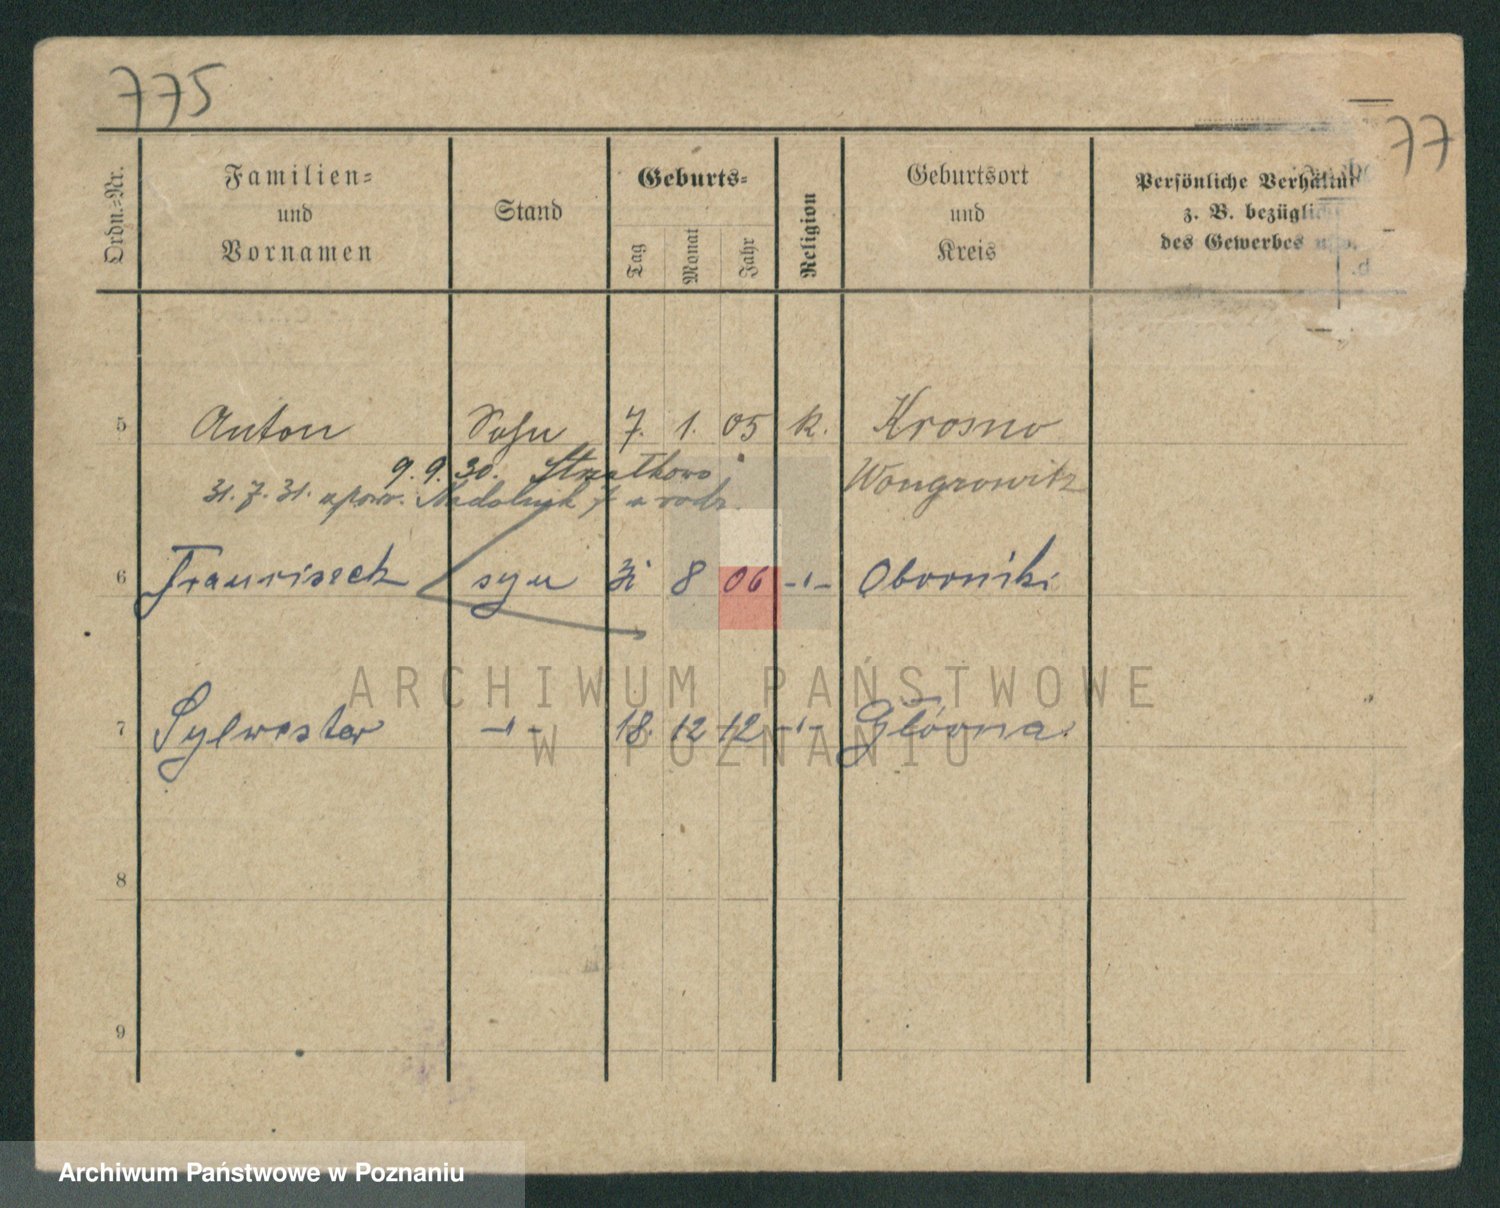 775
77
Ordn.-Nr.
Familien-
und
Vornamen
Stand
Geburts-
Tag
Monat
Jahr
Religion
Geburtsort
und
Kreis
Persönliche
z. B.
des Gewerbes
5 Anton Sohn 7. 1. 05 k. Krosno
9. 9. 30. Strzałkowo Wongrowitz
31. 7. 31. a rodz.
6 Franciszek syn 8 06 -"- Oborniki
7 Sylwester -"- 18. 12 12 -"- Główna.
8
9
ARCHIWUM PAŃSTWOWE
W POZNANIU
Archiwum Państwowe w Poznaniu